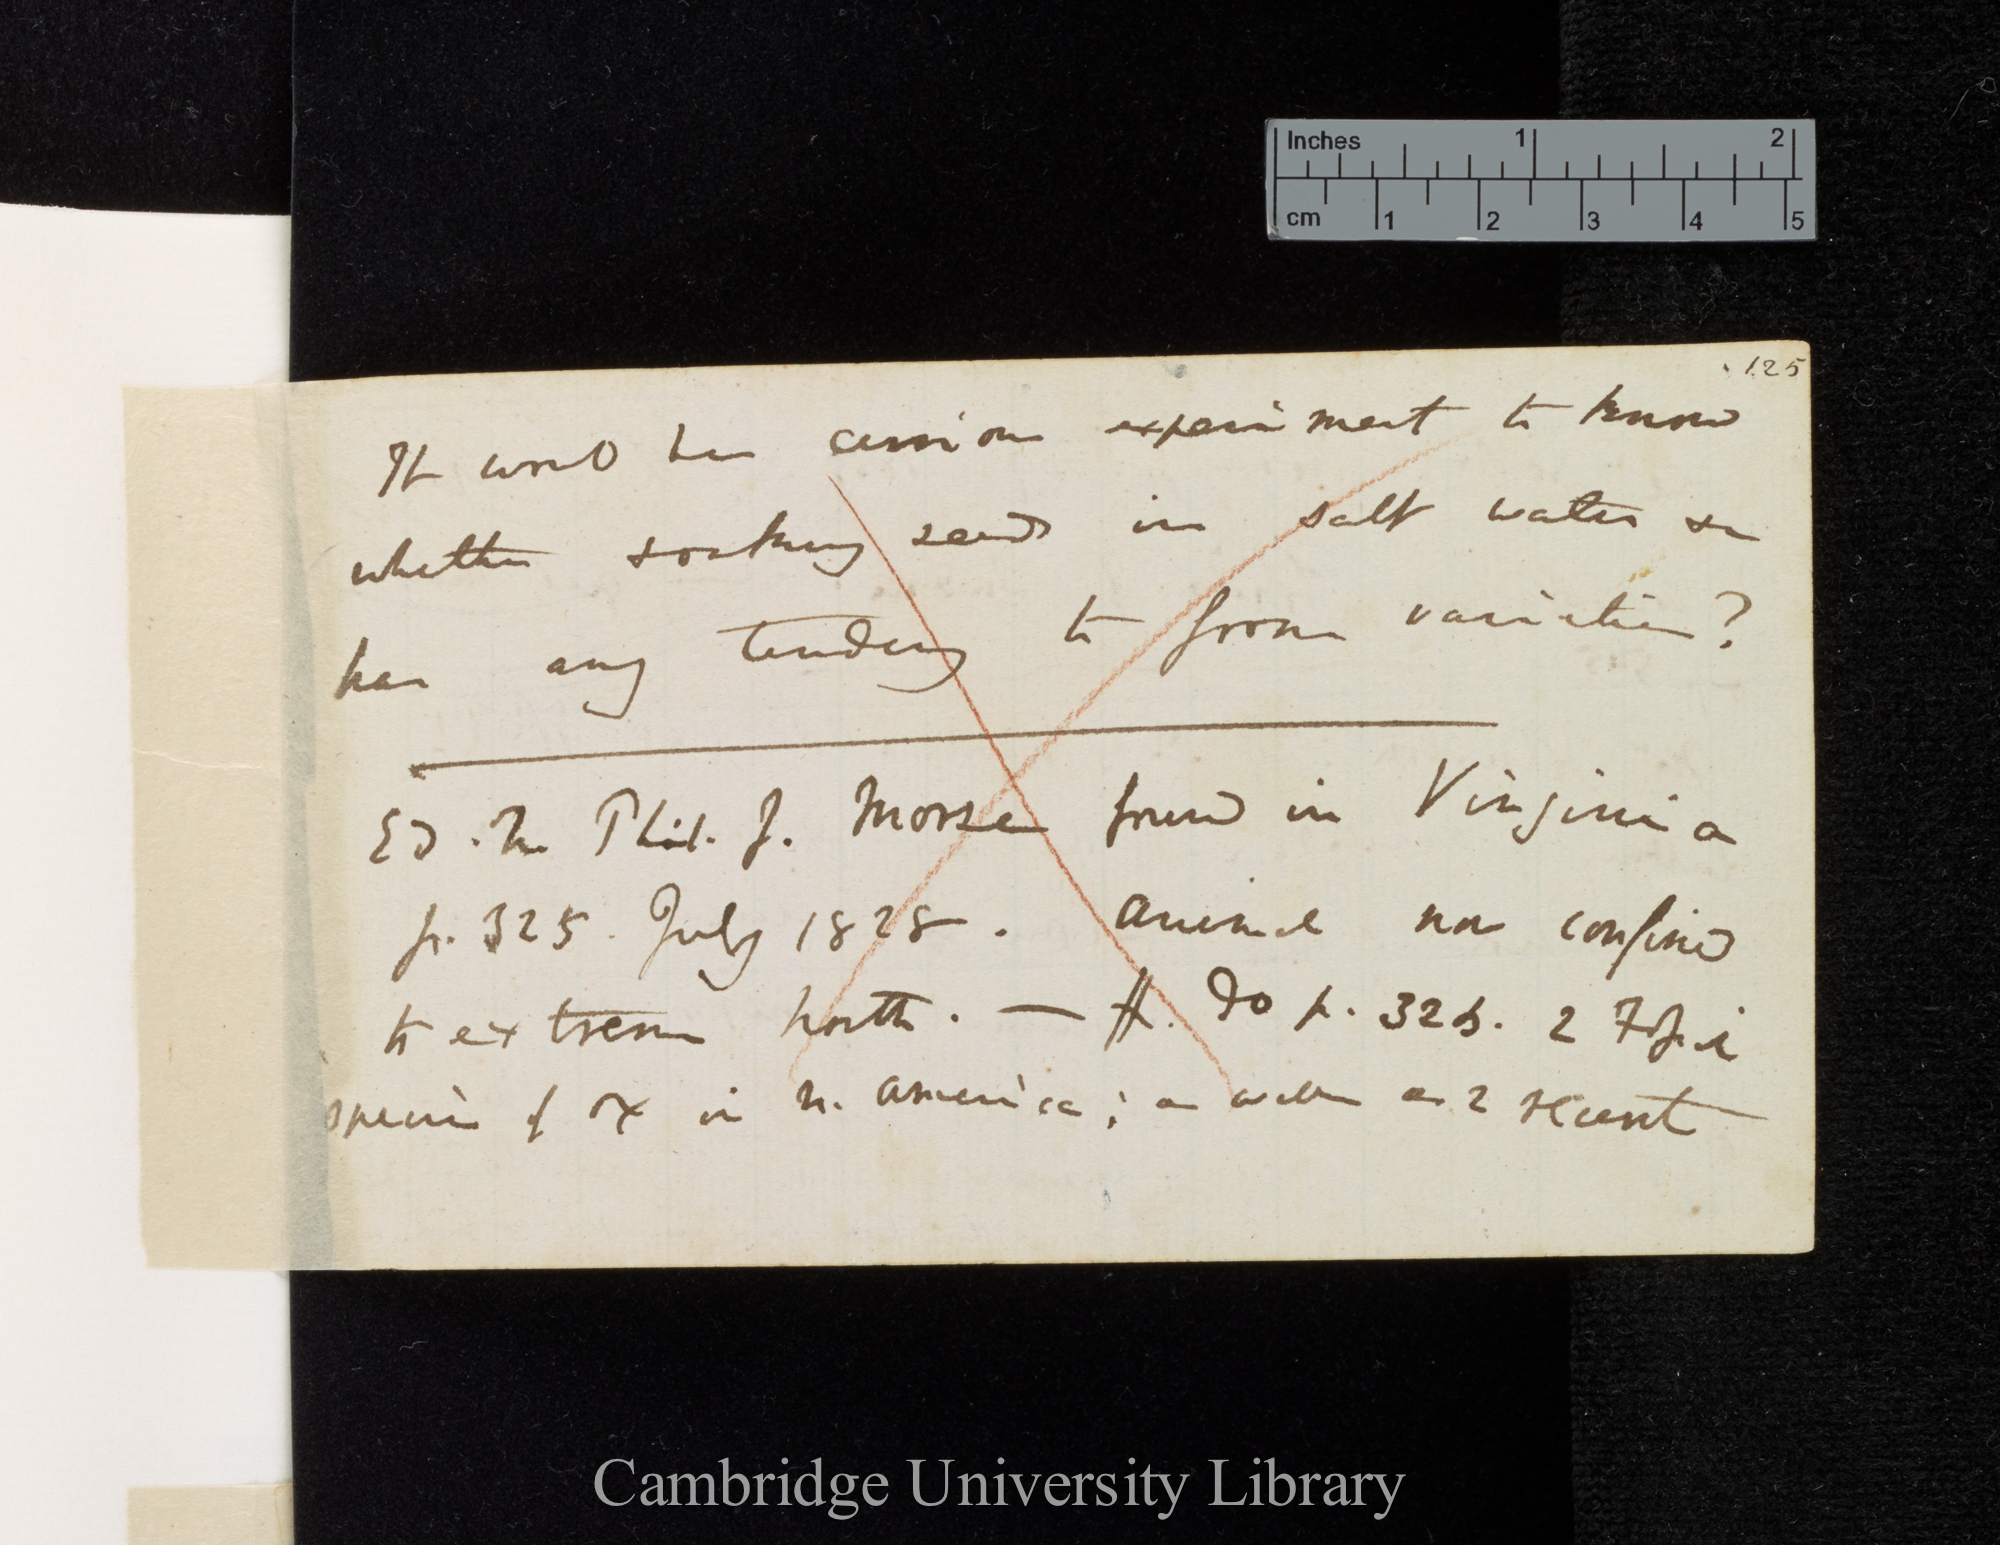 Inches 1 2
cm 1 2 3 4 5
125
It would be curious experiment to know
whether soaking seeds in salt water &c
has any tendency to form varieties?
Ed. N. Phil. J. Morse found in Virginia
p. 325. July 1828. animal not confined
to extreme north. — Do p. 326. 2 Fossil
species of ox in N. America; as well as 2 recent
Cambridge University Library